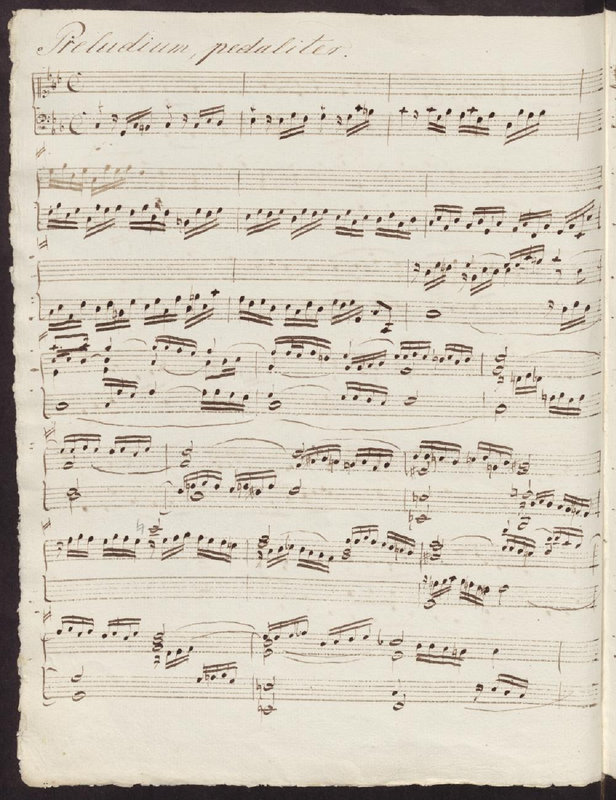 Preludium, pedaliter.